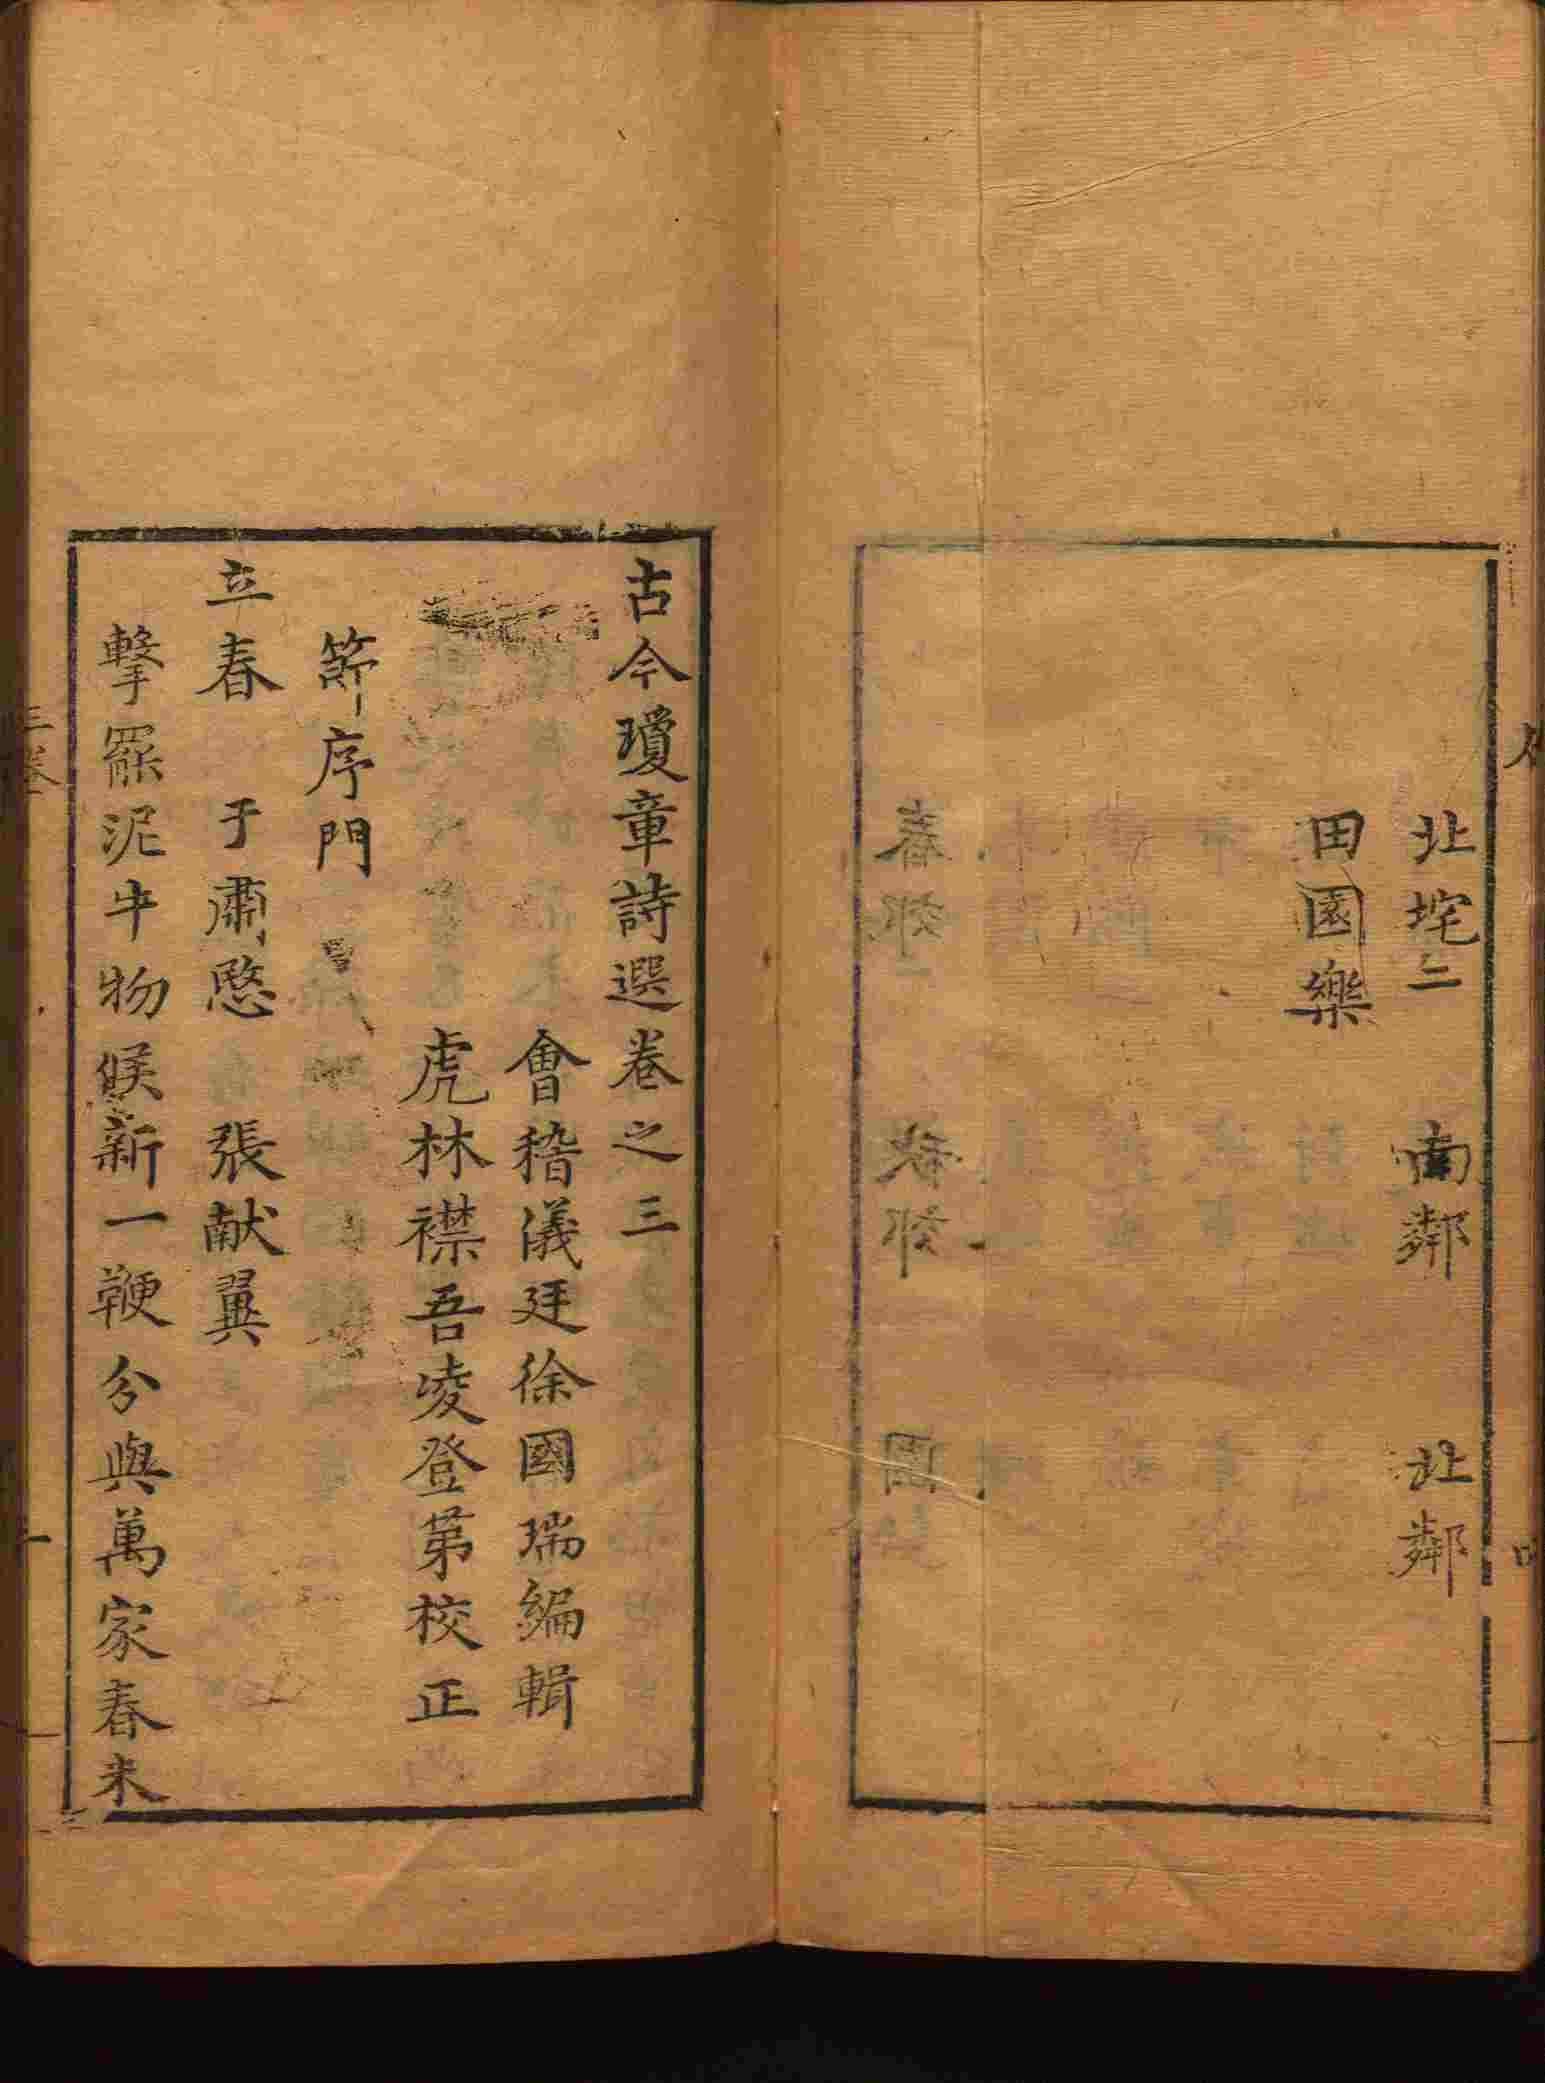 北垞二　南鄰　北鄰
田園樂
古今瓊章詩選卷之三
會稽儀廷徐國瑞編輯
虎林襟吾凌登第校正
節序門
立春　于肅愍　張献翼
擊罷泥牛物候新一鞭分與萬家春未
三卷
一